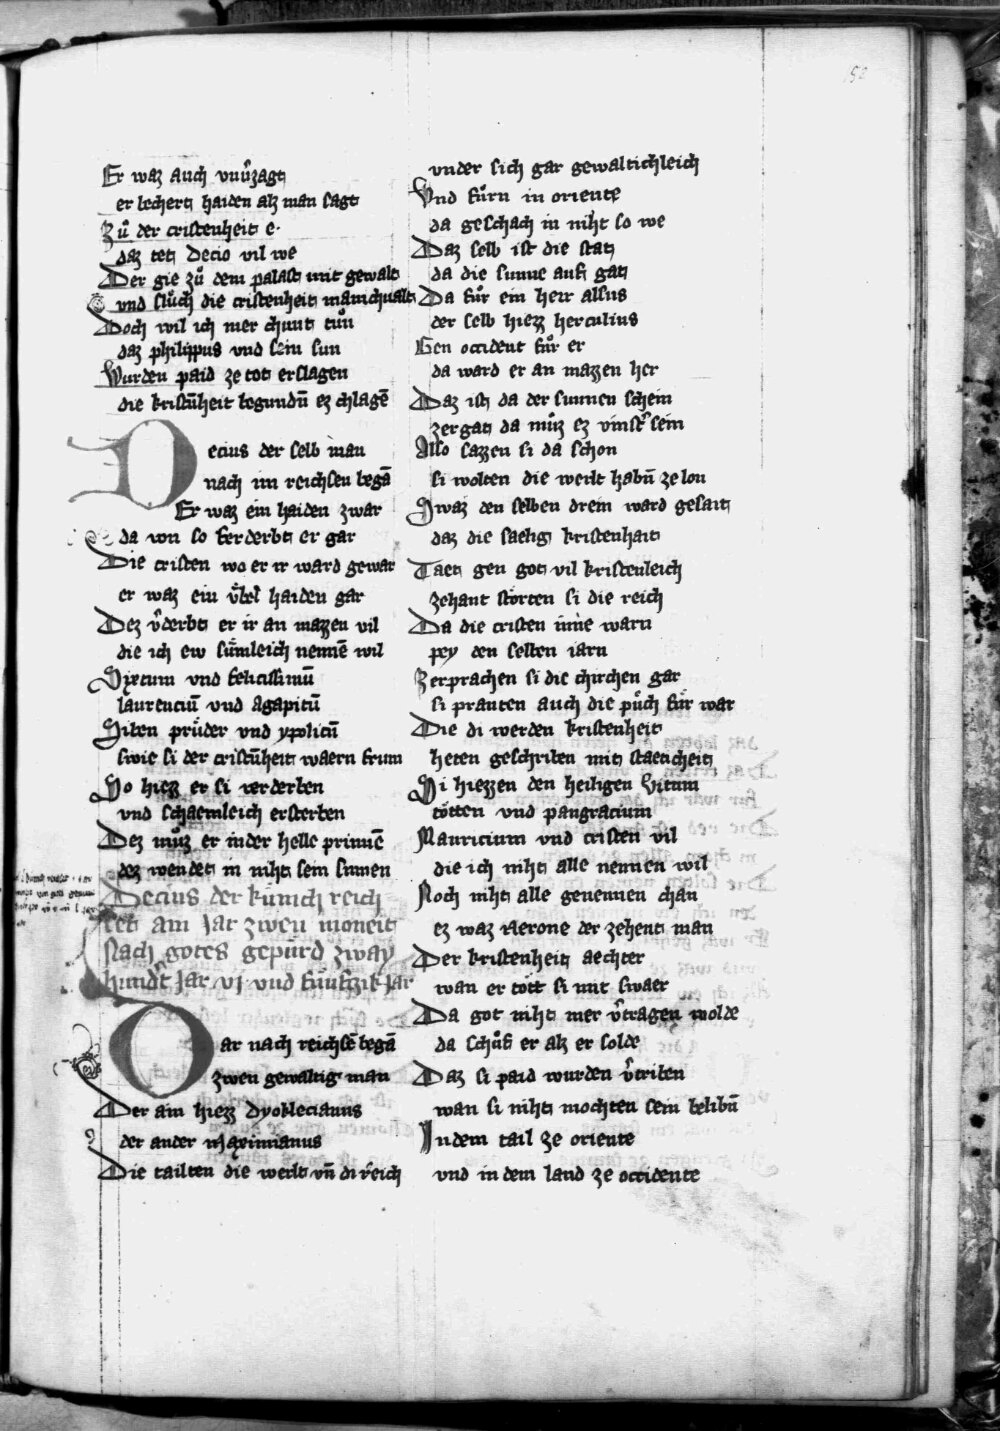 152
Er waz auch vnuͤzagt
er lechert haiden alz man sagt
Zuͦ der cristenheit e·
daz tet Decio vil we
Der gie zuͦ dem palast mit gewalt
vnd sluͦch die cristenheit manichualt
Doch wil ich mer chunt tuͦn
daz philippus vnd sein sun
Wurden paid ze tot erslagen
die kristn̄heit begundn̄ ez chlagē
Decius der selb man
nach im reichsen begā
Er waz ein haiden zwar
da von so verderbt er gar
Die cristen wo er ir ward gewar
er waz ein vͤbel haiden gar
Dez v̉derbt er ir an mazzen vil
die ich ew sumleich nennē wil
Sixtum vnd felicissimū
laurenciū vnd agapitū
Siben pruͤder vnd ypolitū
swie si der cristn̄heit waern frum
So hiezz er si verderben
vnd schaemleich ersterben
Dez muͦz er inder helle prinnē
dez wendet in niht sein sinnen
Decius der kunich reich
tet ain jar zwen moneit
Nach gotes gepurd zway
hundt̉ Jar vj vnd fuͤnfzik jar
Dar nach reichsē begā
zwen gewaltig man
Der ain hiezz dyoklecianus
der ander Maximianus
Die tailten die werlt vn̄ di reich
vnder sich gar gewaltichleich
Vnd fuͦrn in oriente
da geschach in niht so we
Daz selb ist die stat
da die sunne auf gat
Da fuͦr ein herr alsus
der selb hiezz herculius
Gen occident fuͦr er
da ward er an mazzen her
Daz ist da der sunnen schein
zergat da muͦz ez vinst̉ sein
Also sazzen si da schon
si wolten die werlt habn̄ ze lon
Swaz den selben drein ward gesait
daz die saelig kristenhait
Taet gen got vil kristenleich
zehant storten si die reich
Da die cristen inne warn
pey den selben iarn
Zerprachen si die chirchen gar
si pranten auch die puͦch fuͤr war
Die di werden kristenheit
heten geschriben mit staeticheit
Si hiezzen den heiligen Vitum
toͤtten vnd pangracium
Mauricium vnd cristen vil
die ich niht alle nennen wil
Noch niht alle genennen chan
ez waz Nerone der zehent man
Der kristenheit aechter
wan er toͤtt si mit swaer
Da got niht mer v̉tragen wolde
da schuͦf er alz er solde
Daz si paid wurden v̉triben
wan si niht mochten sein belibn̄
Indem tail ze oriente
vnd in dem land ze occidente